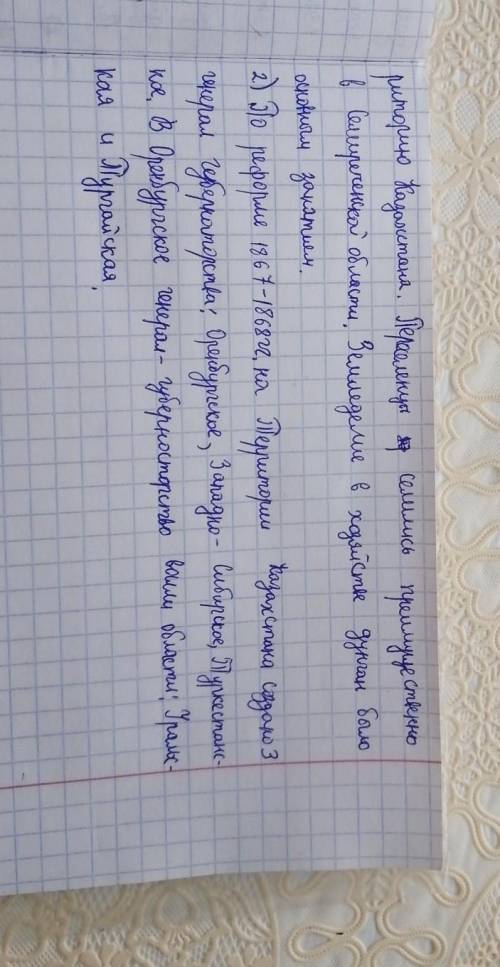 риторию Казахстана. Переселенцы селились преимущественно
в Семиреченской области, Земледелие в хозяйстве дунган было
основным занятием.
2) По реформе 1867-1868гг, на Территории Казахстана создано 3
генерал губернаторства; Оренбургское, Западно-Сибирское, Туркестанс-
кое. В Оренбургское генерал-губернаторство вошли области; Ураль-
кая и Тургайская.